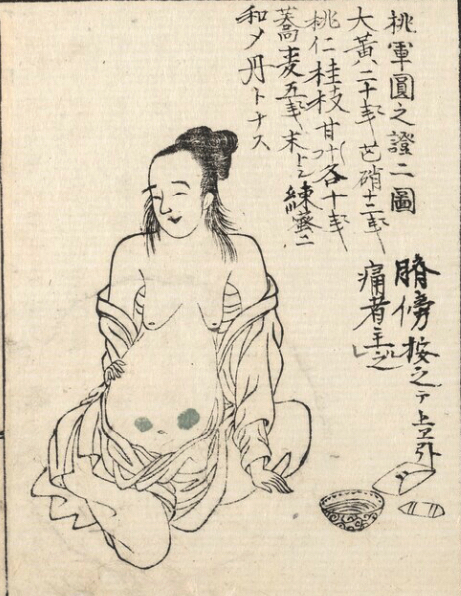 桃軍圓之證二圖
大黃二十銭芒硝十二銭
桃仁桂枝甘草各十銭
蕎麦五銭末トシ練蜜ニ
和メ丹トナス
臍傍按之テ上エ引
痛者主之